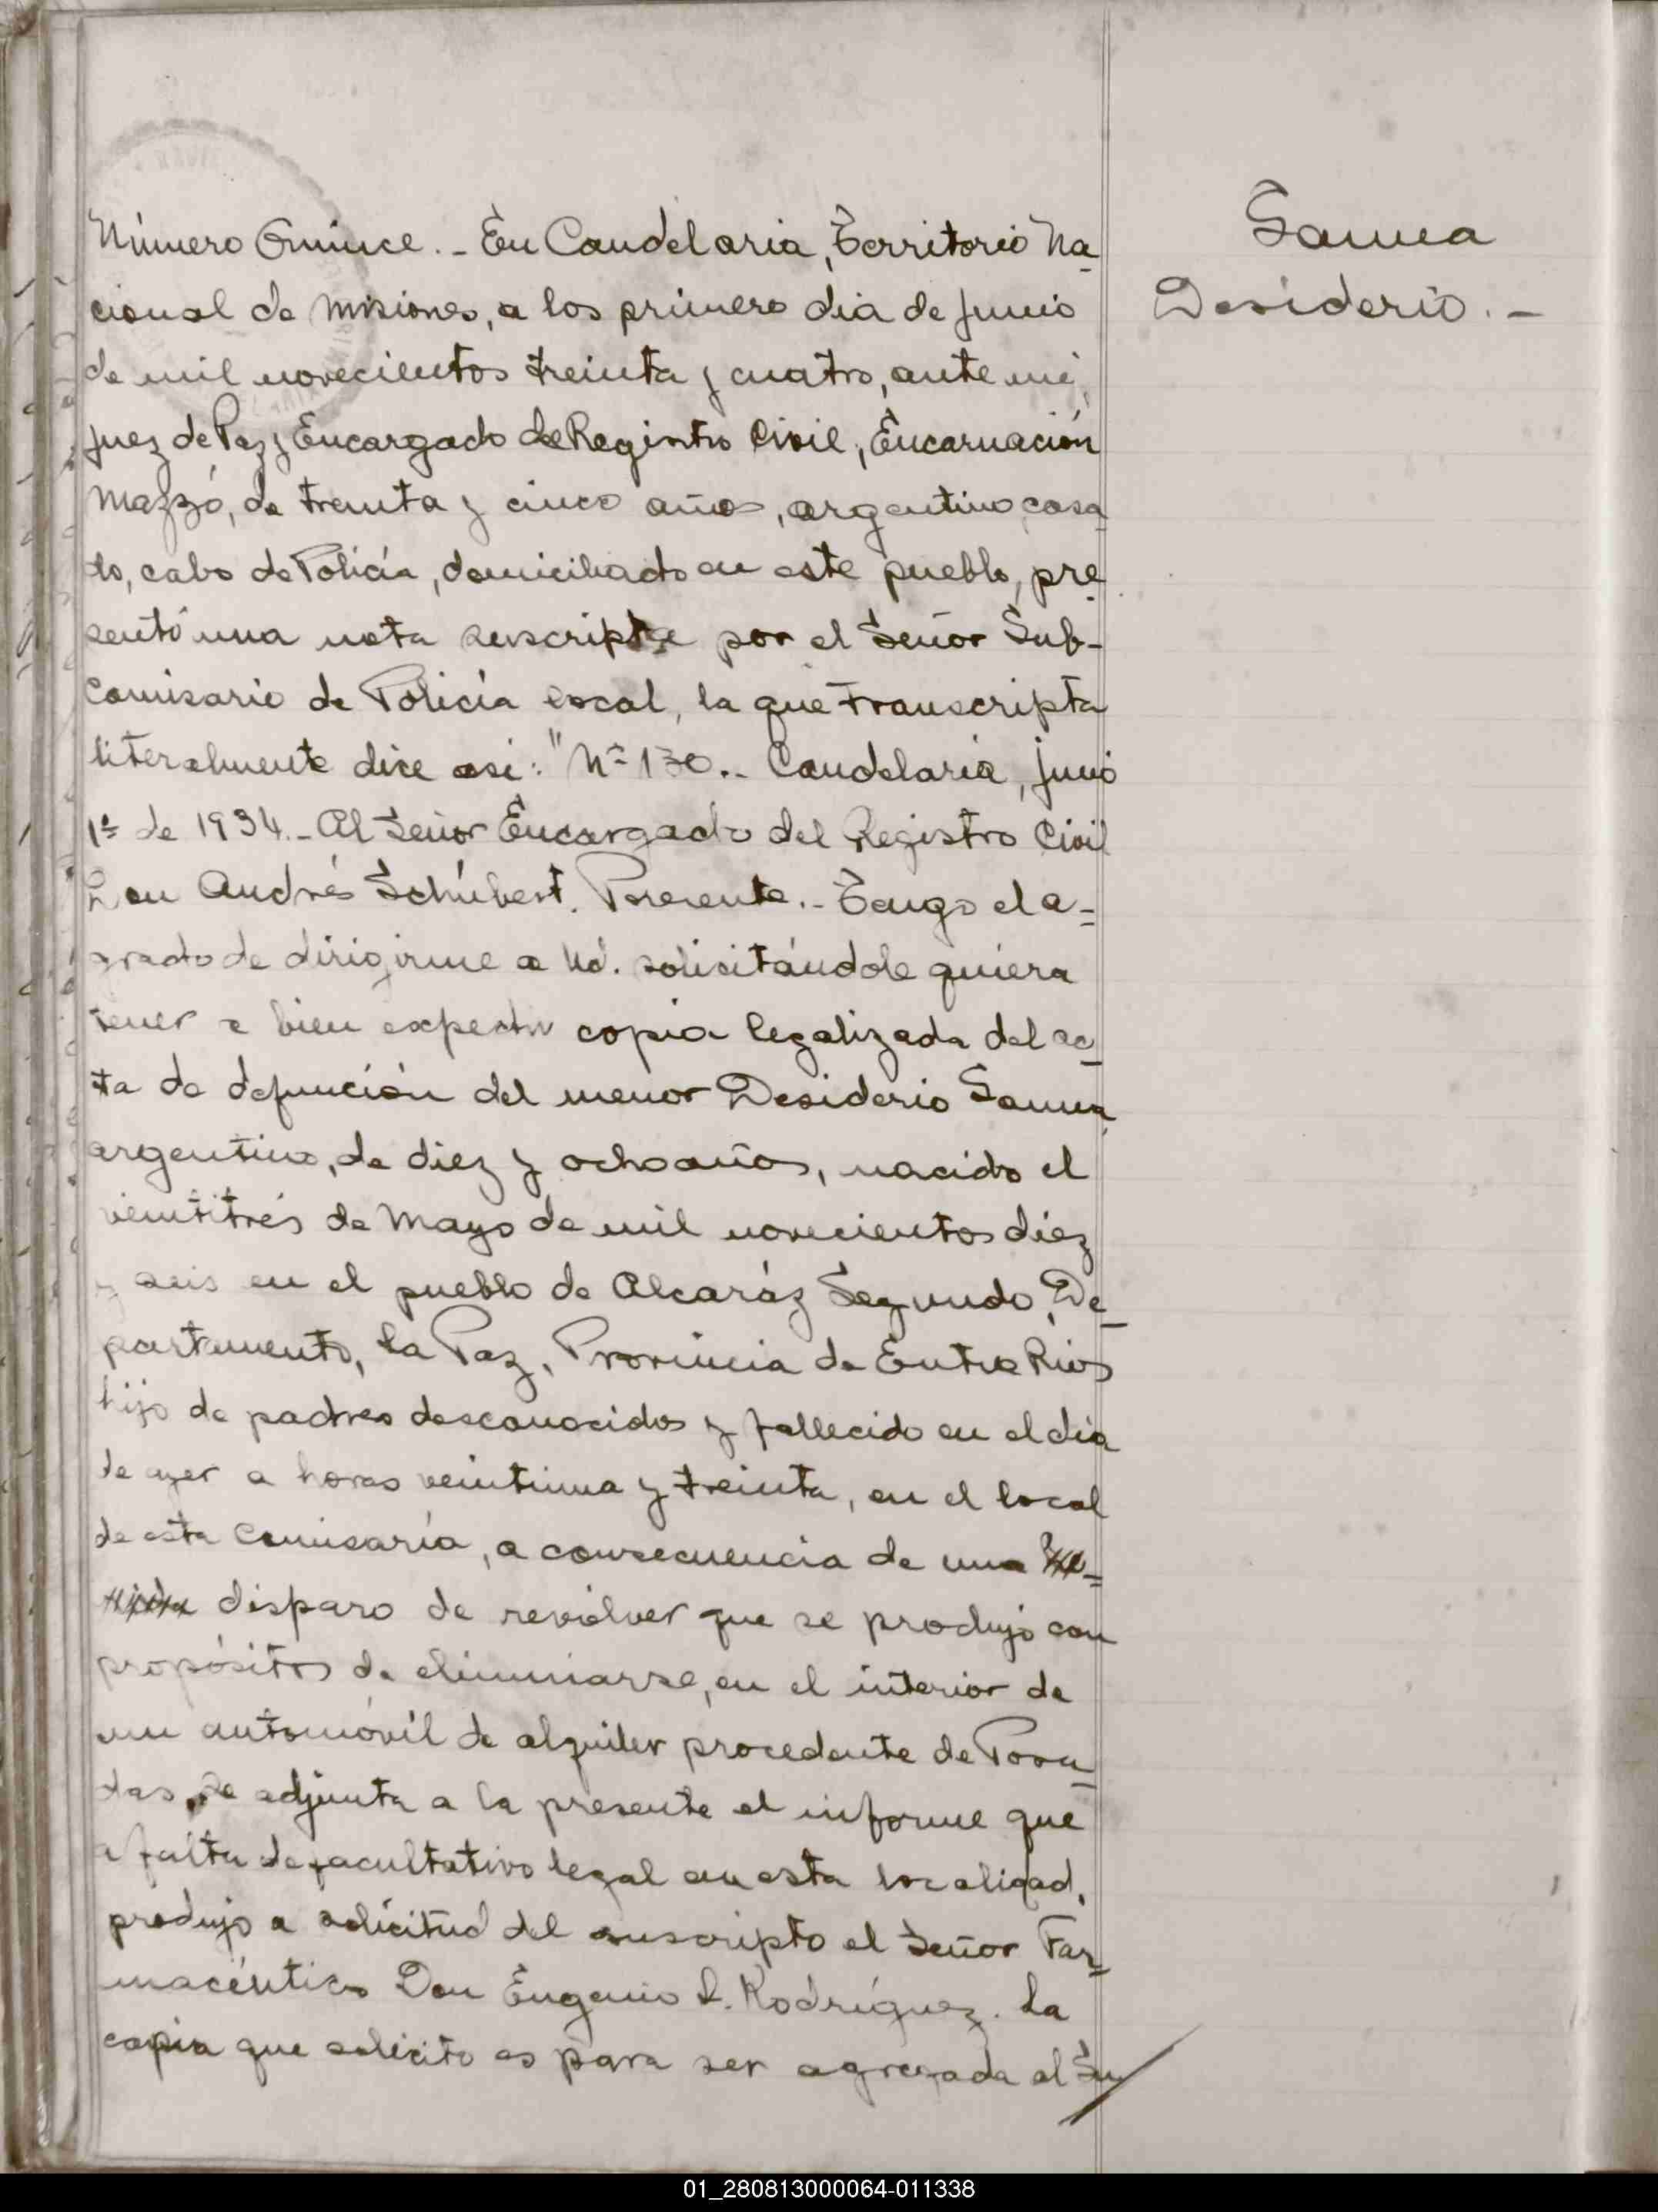 Número Quince. - En Canndelaria, Territorio Na-
cional de Misiones, a los primero dia de Junio
de mil novecientos treinta y cuatro, ante mí,
Juez de Paz y Encargado de Registro Civil, Encarnación
Mazzó, de treinta y cinco años, argentino, casa
do, cabo de Policía, domiciliado en este pueblo, pre
sentó una nota suscripta por el Señor Sub-
Comisario de Policía local, la que transcripta
literalmente dice así: "Nº 130.- Candelaria, junio
1º de 1934.- Al Señor Encargado del Registro Civil
Don Andrés Schúbert. Presente.- Tengo el a-
grado de dirigirme a Ud. solicitándole quiera
tener a bien expedir copia legalizada del ac-
ta de defunción del menor Desiderio Sanna
argentino, de diez y ocho años, nacido el
veintitrés de Mayo de mil novecientos diez
y seis en el pueblo de Alcaráz Segundo, De-
partamento, la Paz, Provincia de Entre Rios
hijo de padres desconocidos y fallecido en el día
de ayer a horas veintiuna y treinta, en el local
de esta Comisaría, a consecuencia de una
disparo de revólver que se produjo con
propósitos de eliminarse, en el interior de
un automóvil de alquiler procedente de Posa-
das, se adjunta a la presente el informe que
a falta de facultativo legal en esta localidad,
produjo a solicitud del suscripto el Señor Far-
macéutico Don Eugenio L. Rodríguez. La
copia que solicito es para ser agregada al Su
Sanna
Desiderio. -
01_280813000064-011338